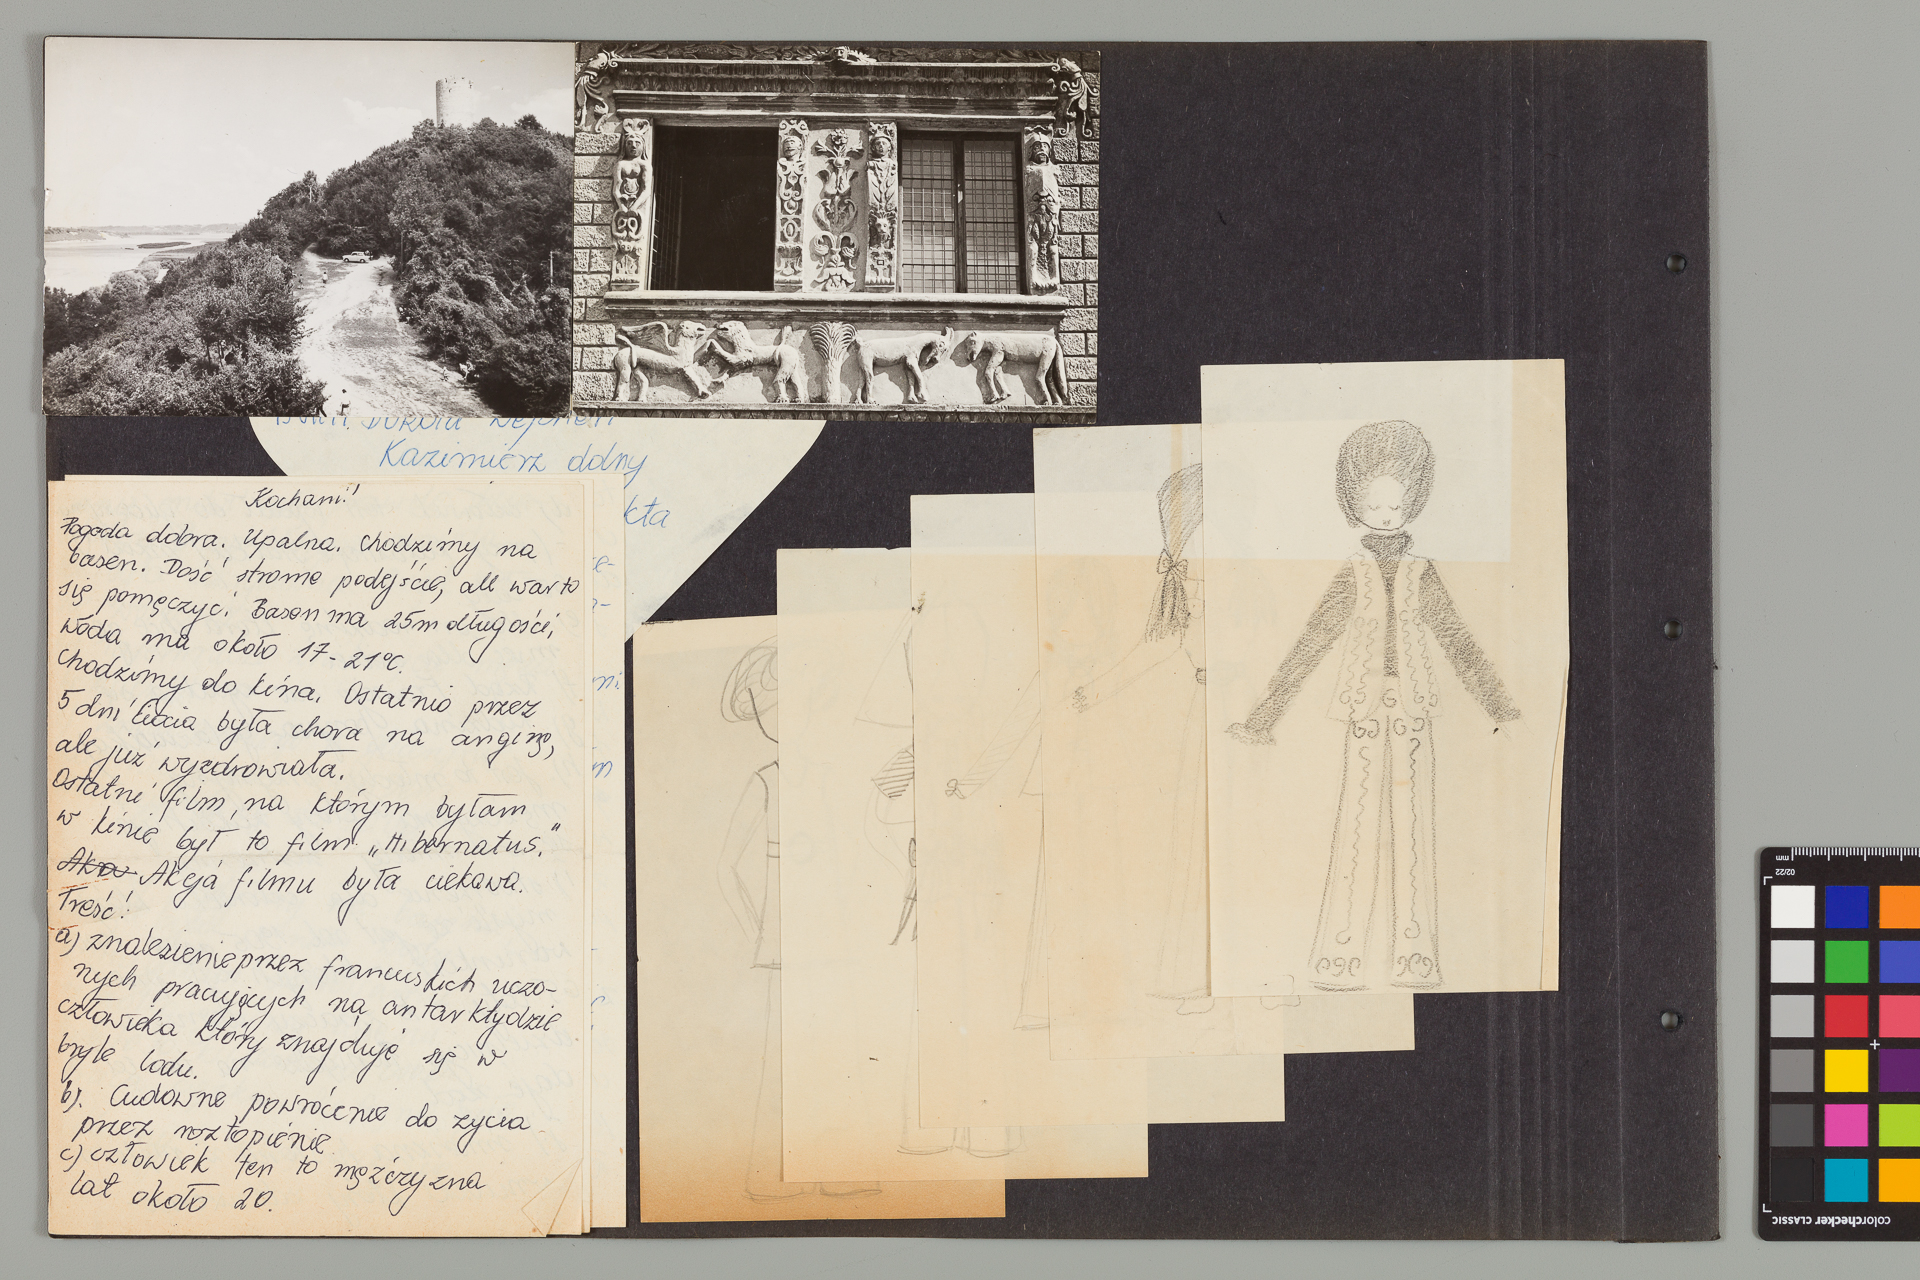 Kazimierz dolny
kła
Kochani!
Pogoda dobra. Upalna. Chodzimy na
basen. Dość strome podejście, ale warto
się pomęczyć! Basen ma 25m długości,
woda ma około 17-21°C.
Chodzimy do kina. Ostatnio przez
5 dni Ciocia była chora na anginę,
ale już wyzdrowiała.
Ostatni film, na którym byłam
w kinie był to film „Hibernatus."
Akcja filmu była ciekawa.
Treść!
a) znalezienie przez francuskich uczo-
nych pracujących na antarktydzie
człowieka który znajduje się w
bryle lodu.
b). Cudowne powrócenie do życia
przez roztopienie
c) człowiek ten to mężczyzna
lat około 20.
mm
02/22
colorchecker CLASSIC